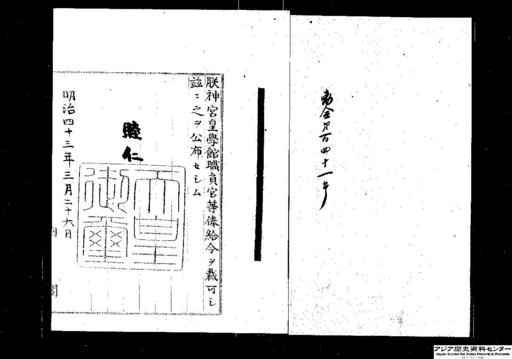 勅令第百四十一号
朕神宮皇學館職員官等俸給令ヲ裁可シ
茲ニ之ヲ公布セシム
睦仁
天皇御璽
明治四十三年三月二十六日
内閣
アジア歴史資料センター
Japan Center for Asian Historical Records